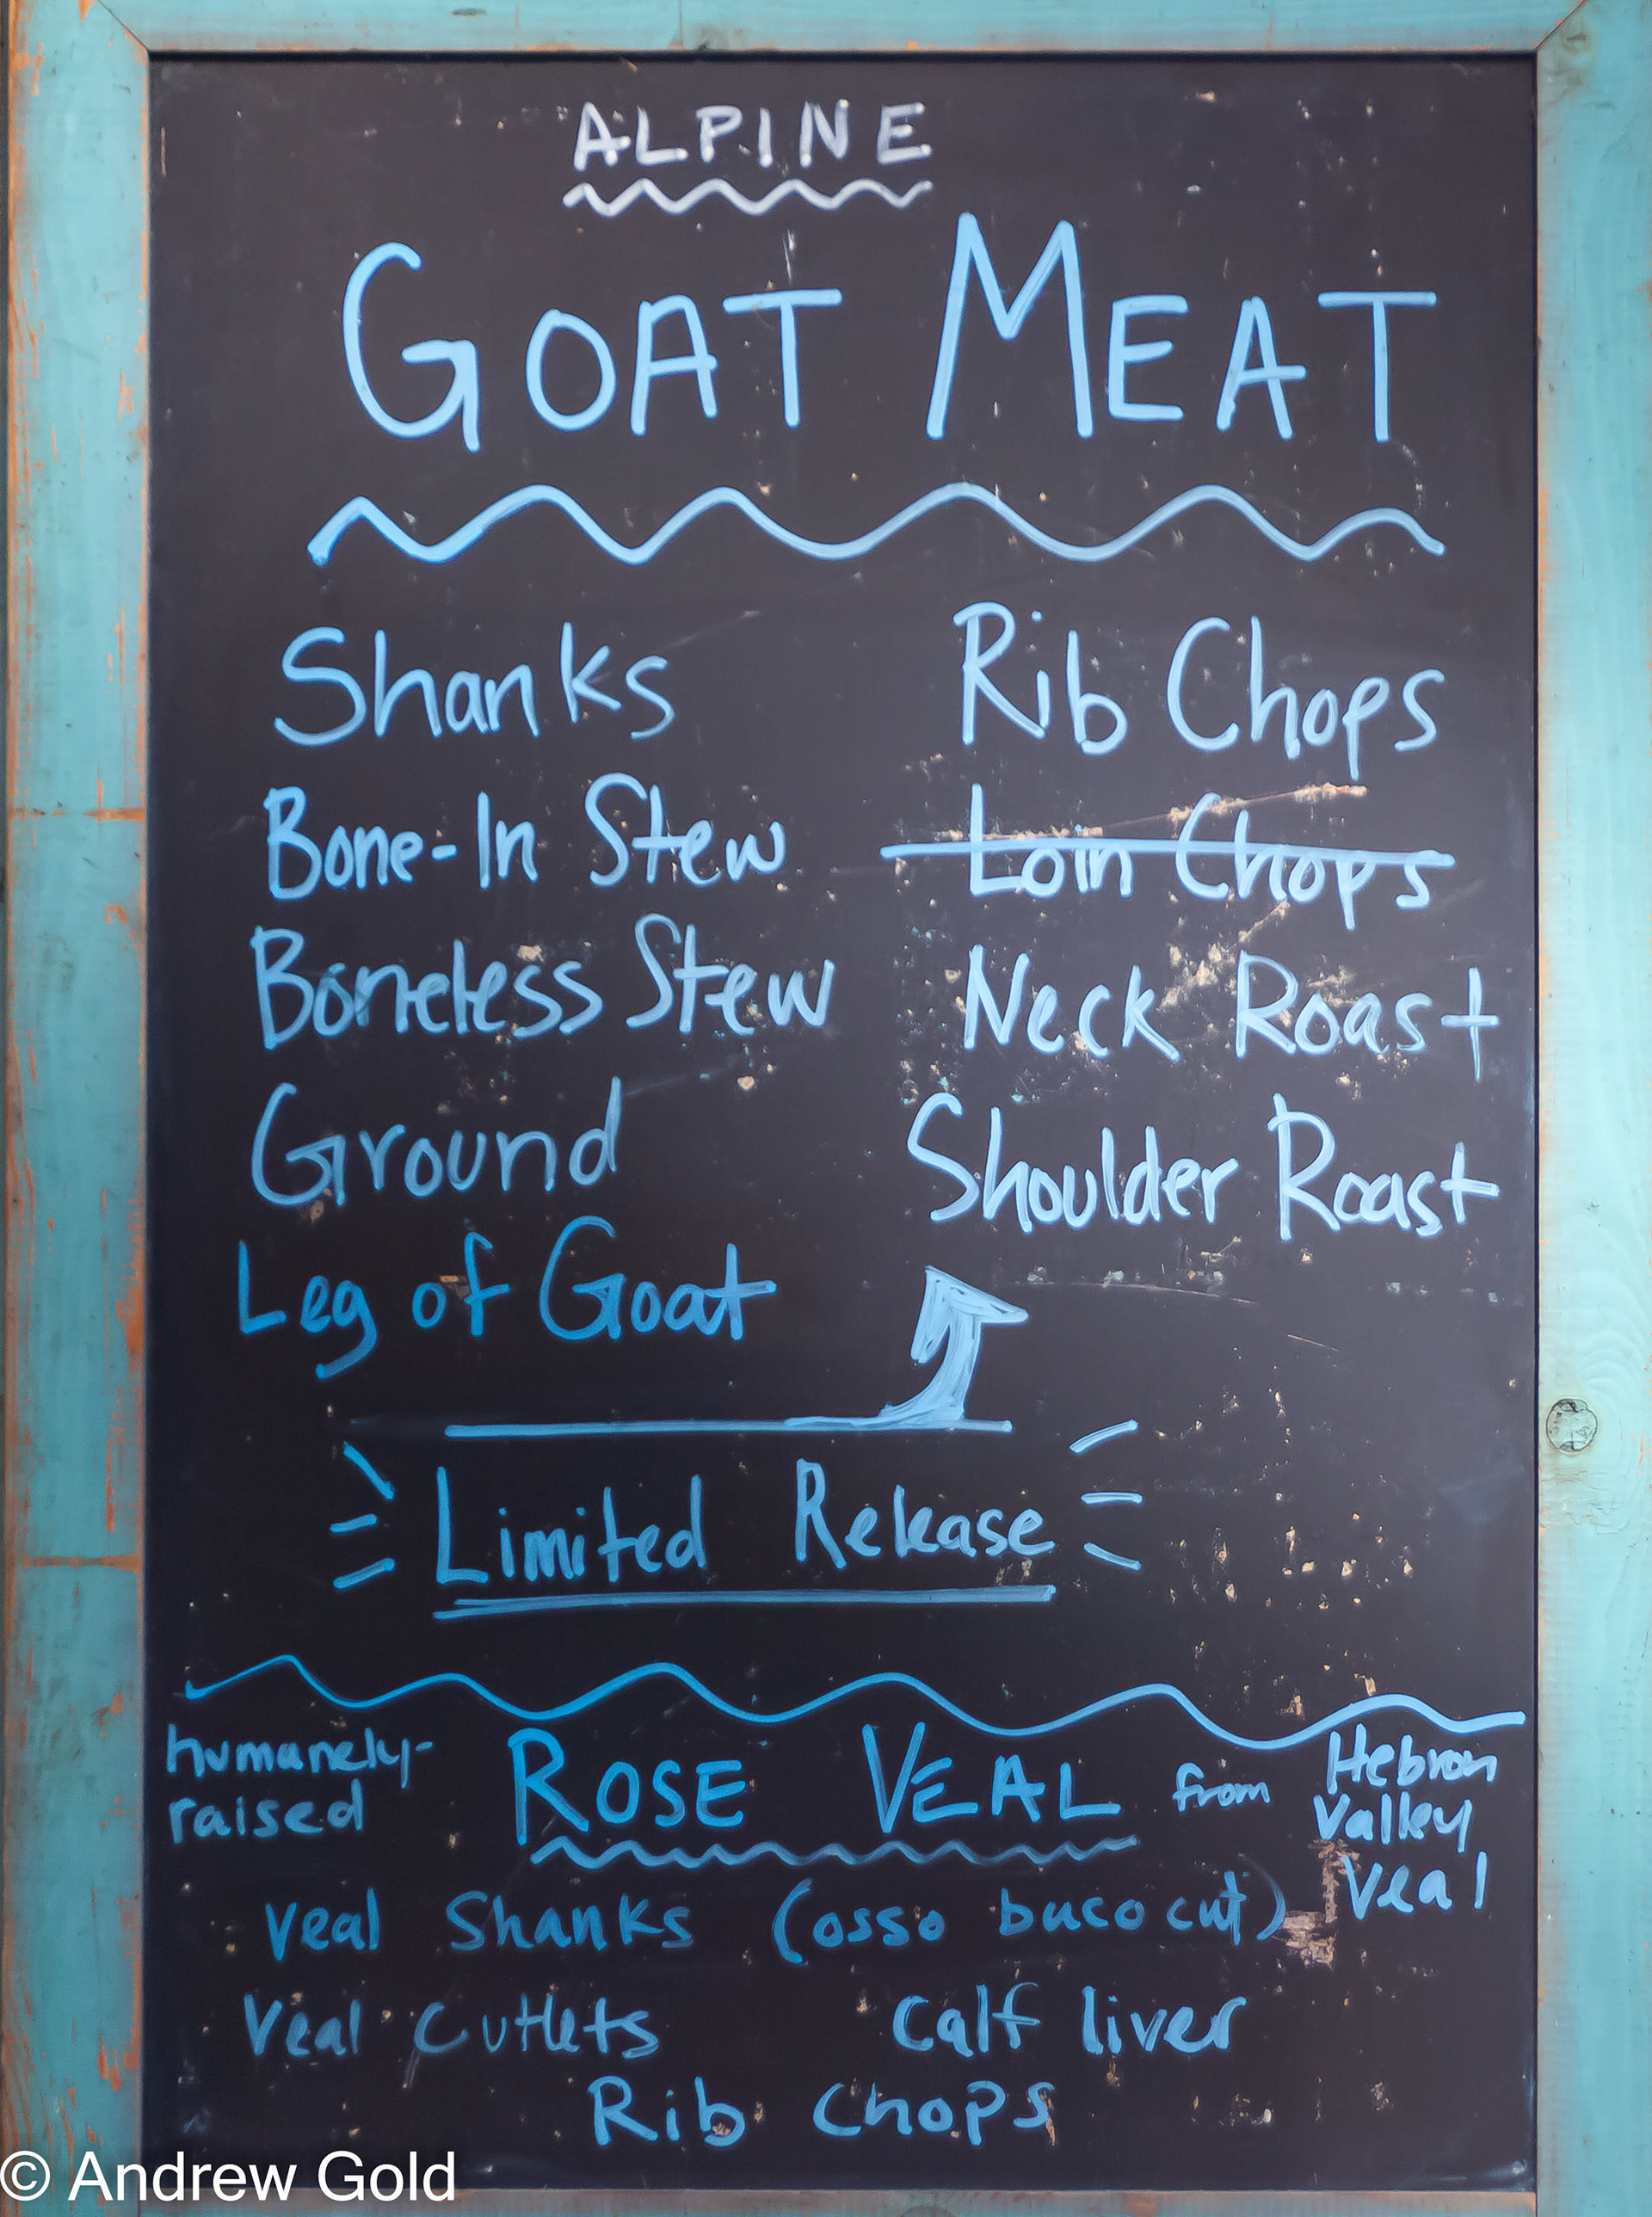 ALPINE
GOAT MEAT
Shanks
Bone-In Stew
Boneless Stew
Ground
Leg of Goat
Rib Chops
Loin Chops
Neck Roast
Shoulder Roast
Limited Release
humanely-
raised
ROSE VEAL from
Hebron
Valley
Veal
Veal Shanks (osso buco cut)
Veal Cutlets
Calf liver
Rib Chops
© Andrew Gold